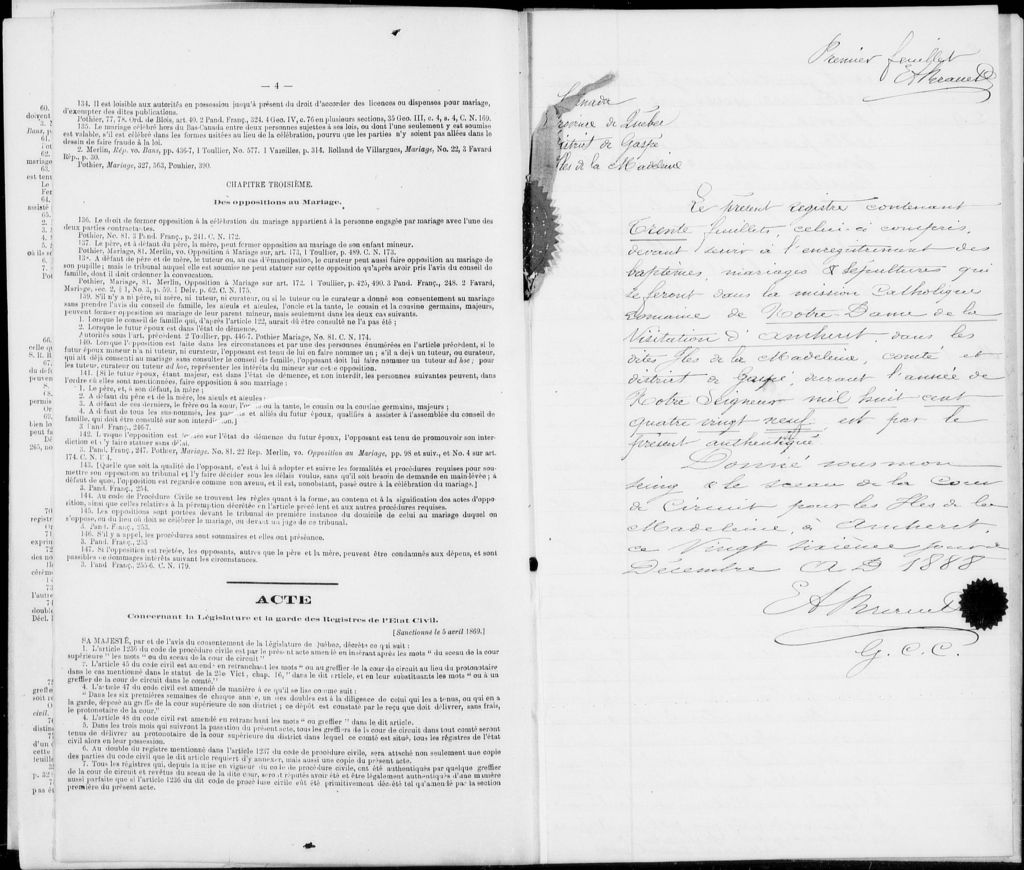 — 4 —
134. Il est loisible aux autorités en possession jusqu'à présent du droit d'accorder des licences ou dispenses pour mariage,
d'exempter des dites publications.
Pothier, 77, 78. Ord. de Blois, art. 40. 2 Pand. Franç., 324. 4 Geo. IV, c. 76 en plusieurs sections, 35 Geo. III, c. 4, s. 4, C. N. 169.
135. Le mariage célébré hors du Bas-Canada entre deux personnes sujettes à ses lois, ou dont l'une seulement y est soumise
est valable, s'il est célébré dans les formes usitées au lieu de la célébration, pourvu que les parties n'y soient pas allées dans le
dessein de faire fraude à la loi.
2. Merlin, Rép. vo. Bans, pp. 436-7, 1 Toullier, No. 577. 1 Vazeilles, p. 314. Rolland de Villargues, Mariage, No. 22, 3 Favard
Rép., p. 30.
Pothier, Mariage, 327, 363, Pouhier, 390.
CHAPITRE TROISIÈME.
Des oppositions au Mariage.
136. Le droit de former opposition à la célébration du mariage appartient à la personne engagée par mariage avec l'une des
deux parties contractantes.
Pothier, No. 81. 3 Pand. Franç., p. 241. C. N. 172.
137. Le père, et à défaut du père, la mère, peut former opposition au mariage de son enfant mineur.
Pothier, Mariage, 81. Merlin, vo. Opposition à Mariage sur, art. 173, 1 Toullier, p. 489. C. N. 173.
138. A défaut de père et de mère, le tuteur ou, au cas d'émancipation, le curateur peut aussi faire opposition au mariage de
son pupille; mais le tribunal auquel elle est soumise ne peut statuer sur cette opposition qu'après avoir pris l'avis du conseil de
famille, dont il doit ordonner la convocation.
Pothier, Mariage, 81. Merlin, Opposition à Mariage sur art. 172. 1 Toullier, p. 425, 490. 3 Pand. Franç., 248. 2 Favard,
Mariage, sec. 2, § 1, No. 3, p. 59. 1 Delv. p. 62. C. N. 175.
139. S'il n'y a ni père, ni mère, ni tuteur, ni curateur, ou si le tuteur ou le curateur a donné son consentement au mariage
sans prendre l'avis du conseil de famille, les aïeuls et aïeules, l'oncle et la tante, le cousin et la cousine germains, majeurs,
peuvent former opposition au mariage de leur parent mineur, mais seulement dans les deux cas suivants.
1. Lorsque le conseil de famille qui, d'après l'article 122, aurait dû être consulté ne l'a pas été ;
2. Lorsque le futur époux est dans l'état de démence.
Autorités sous l'art. précédent 2 Toullier, pp. 446-7. Pothier Mariage, No. 81. C. N. 174.
140. Lorsque l'opposition est faite dans les circonstances et par une des personnes énumérées en l'article précédent, si le
futur époux mineur n'a ni tuteur, ni curateur, l'opposant est tenu de lui en faire nommer un ; s'il a déjà un tuteur, ou curateur,
qui ait déjà consenti au mariage sans consulter le conseil de famille, l'opposant doit faire nommer un tuteur ad hoc ; pour
les tuteur, curateur ou tuteur ad hoc, représenter les intérêts du mineur sur cette opposition.
141. [Si le futur époux, étant majeur, est dans l'état de démence, et non interdit, les personnes suivantes peuvent, dans
l'ordre où elles sont mentionnées, faire opposition à son mariage :
1. Le père, et, à son défaut, la mère ;
2. A défaut du père et de la mère, les aïeuls et aïeules ;
3. A défaut de ces derniers, le frère ou la sœur, l'oncle ou la tante, le cousin ou la cousine germains, majeurs ;
4. A défaut de tous les susnommés, les parents et alliés du futur époux, qualifiés à assister à l'assemblée du conseil de
famille, qui doit être consulté sur son interdiction.]
3 Pand. Franç., 246-7.
142. Lorsque l'opposition est fondée sur l'état de démence du futur époux, l'opposant est tenu de promouvoir son inter-
diction et d'y faire statuer sans délai.
3. Pand. Franç., 247. Pothier, Mariage. No. 81. 22 Rep. Merlin, vo. Opposition au Mariage, pp. 98 et suiv., et No. 4 sur art.
174. C. N. 174.
143. [Quelle que soit la qualité de l'opposant, c'est à lui à adopter et suivre les formalités et procédures requises pour sou-
mettre son opposition au tribunal et l'y faire décider dans les délais voulus, sans qu'il soit besoin de demande en main-levée ; à
défaut de quoi, l'opposition est regardée comme non avenue, et il est, nonobstant, passé outre à la célébration du mariage.]
3. Pand. Franç., 254.
144. Au code de Procédure Civile se trouvent les règles quant à la forme, au contenu et à la signification des actes d'oppo-
sition, ainsi que celles relatives à la péremption décrétée en l'article précédent et aux autres procédures requises.
145. Les oppositions sont portées devant le tribunal de première instance du domicile de celui au mariage duquel on
s'oppose, ou du lieu où doit se célébrer le mariage, ou devant un juge de ce tribunal.
3. Pand. Franç., 253.
146. S'il y a appel, les procédures sont sommaires et elles ont préséance.
3. Pand. Franç., 253
147. Si l'opposition est rejetée, les opposants, autres que le père et la mère, peuvent être condamnés aux dépens, et sont
passibles de dommages intérêts suivant les circonstances.
3. Pand. Franç., 255-6. C. N. 179.
ACTE
Concernant la Législature et la garde des Registres de l'Etat Civil.
[Sanctionné le 5 avril 1869.]
SA MAJESTÉ, par et de l'avis du consentement de la législature de Québec, décrète ce qui suit :
1. L'article 1236 du code de procédure civile est par le présent acte amendé en insérant après les mots " du sceau de la cour
supérieure " les mots " ou du sceau de la cour de circuit "
2. L'article 45 du code civil est amendé en retranchant les mots " ou au greffier de la cour de circuit au lieu du protonotaire
dans le cas mentionné dans le statut de la 25e Vict, chap. 16, " dans le dit article, et en leur substituants les mots " ou à un
greffier de la cour de circuit dans le comté."
4. L'article 47 du code civil est amendé de manière à ce qu'il se lise comme suit :
" Dans les six premières semaines de chaque année, un des doubles est à la diligence de celui qui les a tenus, ou qui en a
la garde, déposé au greffe de la cour supérieure de son district ; ce dépôt est constaté par le reçu que doit délivrer, sans frais,
le protonotaire de la cour."
4. L'article 48 du code civil est amendé en retranchant les mots " ou greffier " dans le dit article.
5. Dans les trois mois qui suivront la passation du présent acte, tous les greffiers de la cour de circuit dans tout comté seront
tenus de délivrer au protonotaire de la cour supérieure du district dans lequel ce comté est situé, tous les régistres de l'état
civil alors en leur possession.
6. Au double du registre mentionné dans l'article 1237 du code de procédure civile, sera attaché non seulement une copie
des parties du code civil que le dit article requiert d'y annexer, mais aussi une copie du présent acte.
7. Tous les régistres qui, depuis la mise en vigueur du code de procédure civile, ont été authentiqués par quelque greffier
de la cour de circuit et revêtus du sceau de la dite cour, seront réputés avoir été et être légalement authentiqués d'une manière
aussi parfaite que si l'article 1236 du dit code de procédure civile eût été primitivement décrété tel qu'amendé par la section
première du présent acte.
Premier feuillet
Canada
Province de Québec
District de Gaspé
Iles de la Madeleine
Le présent registre contenant
Trente feuillets, celui-ci compris,
devant servir à l'enregistrement des
baptêmes, mariages & sépultures qui
se feront dans la mission Catholique
Romaine de Notre-Dame de la
Visitation d'Amherst, dans les
dites Iles de la Madeleine, comté et
district de Gaspé, durant l'année de
Notre Seigneur mil huit cent
quatre vingt neuf est par le
présent authentiqué
Donné sous mon
seing & le sceau de la Cour
de Circuit pour les Iles de la
Madeleine, à Amherst,
ce Vingt sixième jour de
Décembre A D 1888
G. C. C.